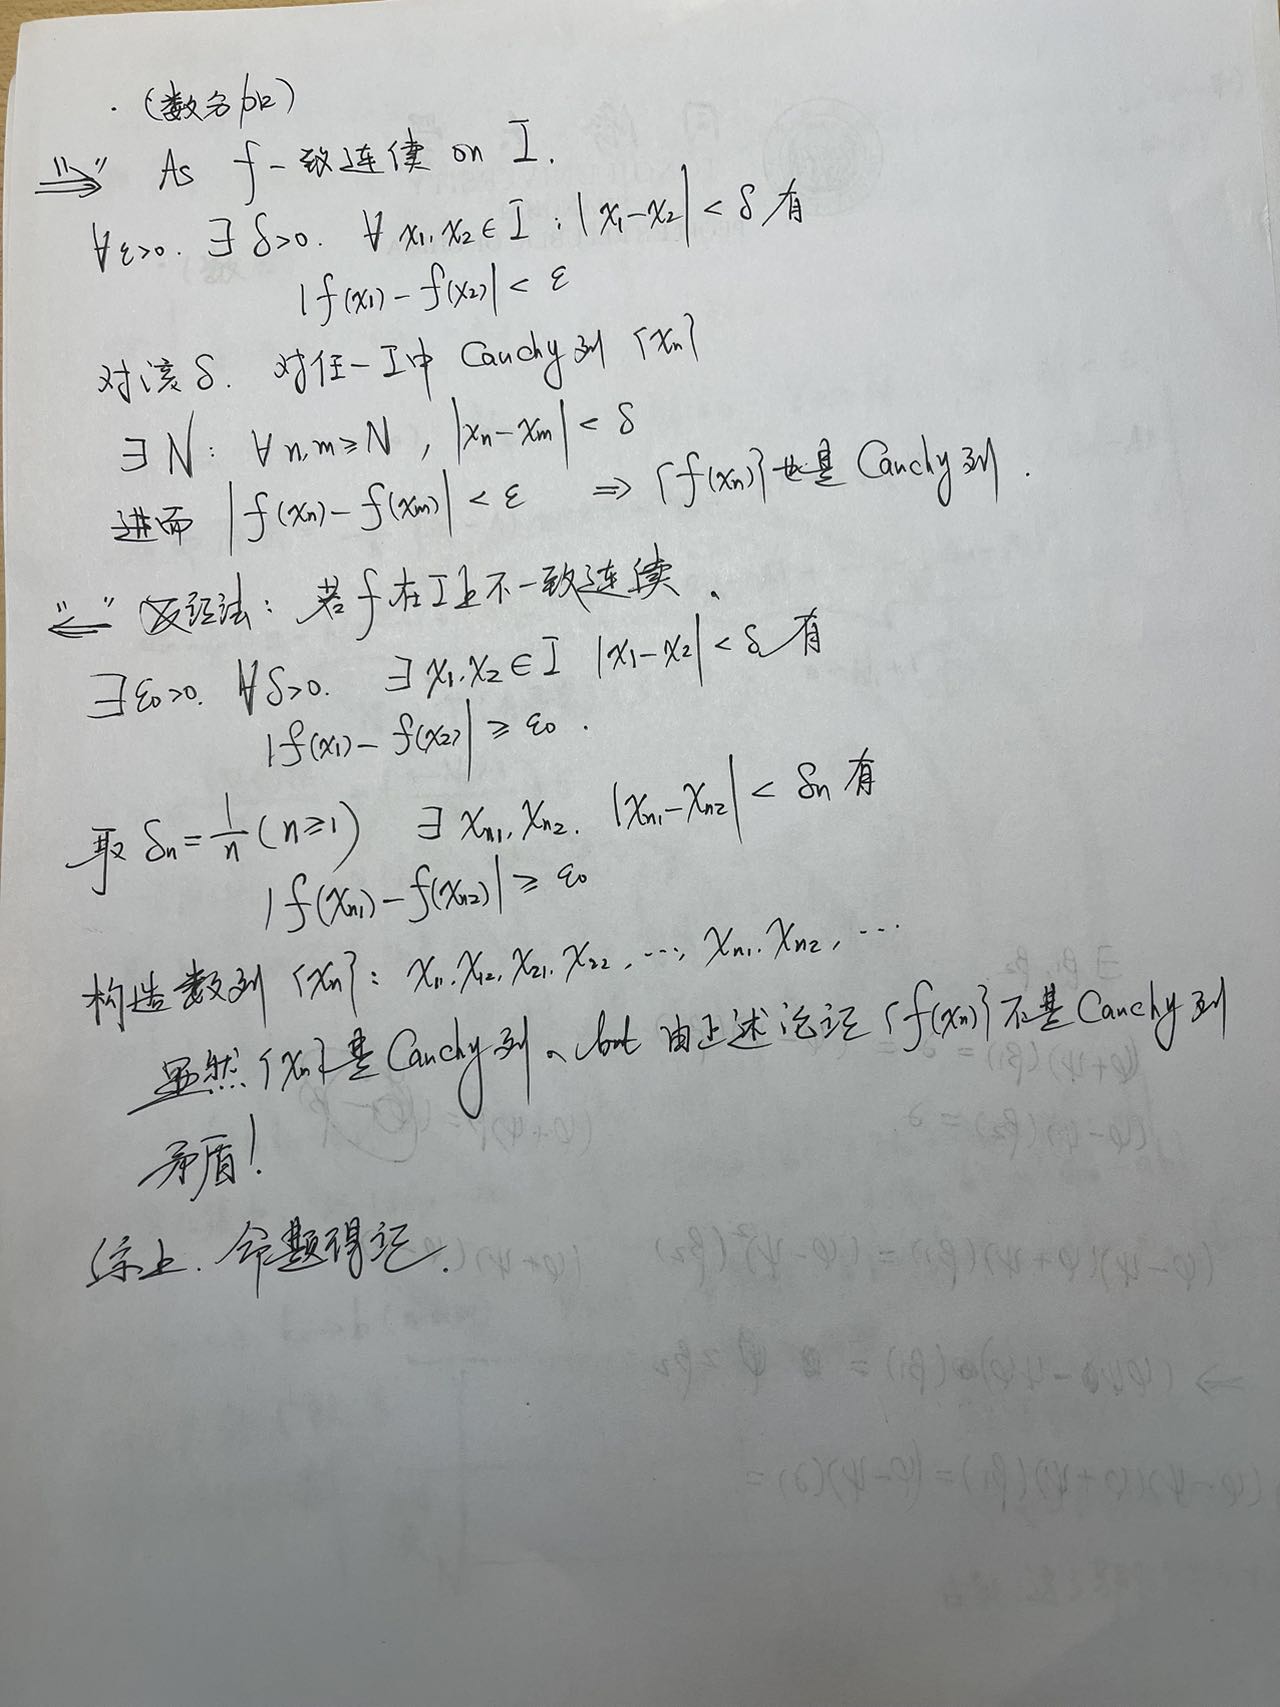 · (数分 pk)
"⇒" As f 一致连续 on I.
∀ε>0. ∃δ>0. ∀ x₁,x₂∈I : |x₁-x₂|<δ 有
|f(x₁)-f(x₂)|<ε
对该δ. 对任一I中 Cauchy列 {xₙ}
∃N: ∀n,m≥N, |xₙ-xₘ|<δ
进而 |f(xₙ)-f(xₘ)|<ε ⇒ {f(xₙ)}也是 Cauchy列.
"⇐" 反证法: 若f在I上不一致连续.
∃ε₀>0. ∀δ>0. ∃x₁,x₂∈I |x₁-x₂|<δ 有
|f(x₁)-f(x₂)|≥ε₀.
取 δₙ=1/n (n≥1) ∃ xₙ₁,xₙ₂. |xₙ₁-xₙ₂|<δₙ 有
|f(xₙ₁)-f(xₙ₂)|≥ε₀
构造数列{xₙ}: x₁₁,x₁₂,x₂₁,x₂₂,…,xₙ₁,xₙ₂,…
显然{xₙ}是Cauchy列, but 由上述论证{f(xₙ)}不是Cauchy列
矛盾!
综上. 命题得证.